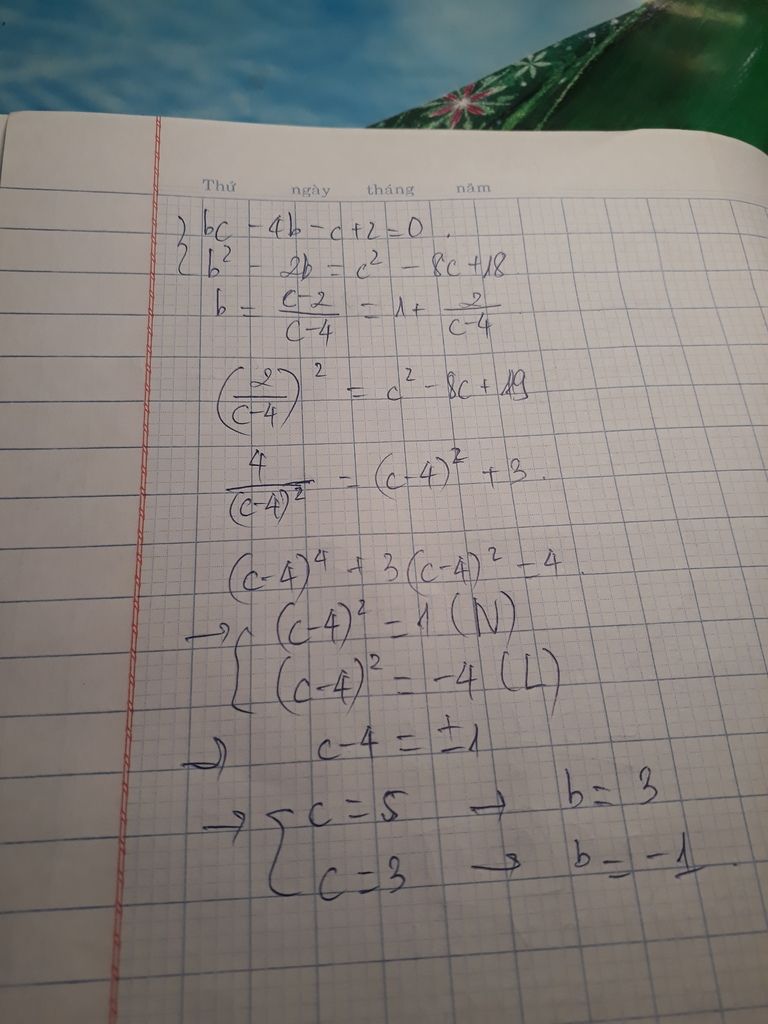 Thứ ngày tháng năm
{ bc - 4b - c + 2 = 0 .
b² - 2b = c² - 8c + 18
b = (c-2)/(c-4) = 1 + 2/(c-4)
(2/(c-4))² = c² - 8c + 19
4/(c-4)² = (c-4)² + 3 .
(c-4)⁴ + 3(c-4)² - 4
→ { (c-4)² = 1 (N)
(c-4)² = -4 (L)
→ c-4 = ±1
→ { c = 5 → b = 3
c = 3 → b = -1 .